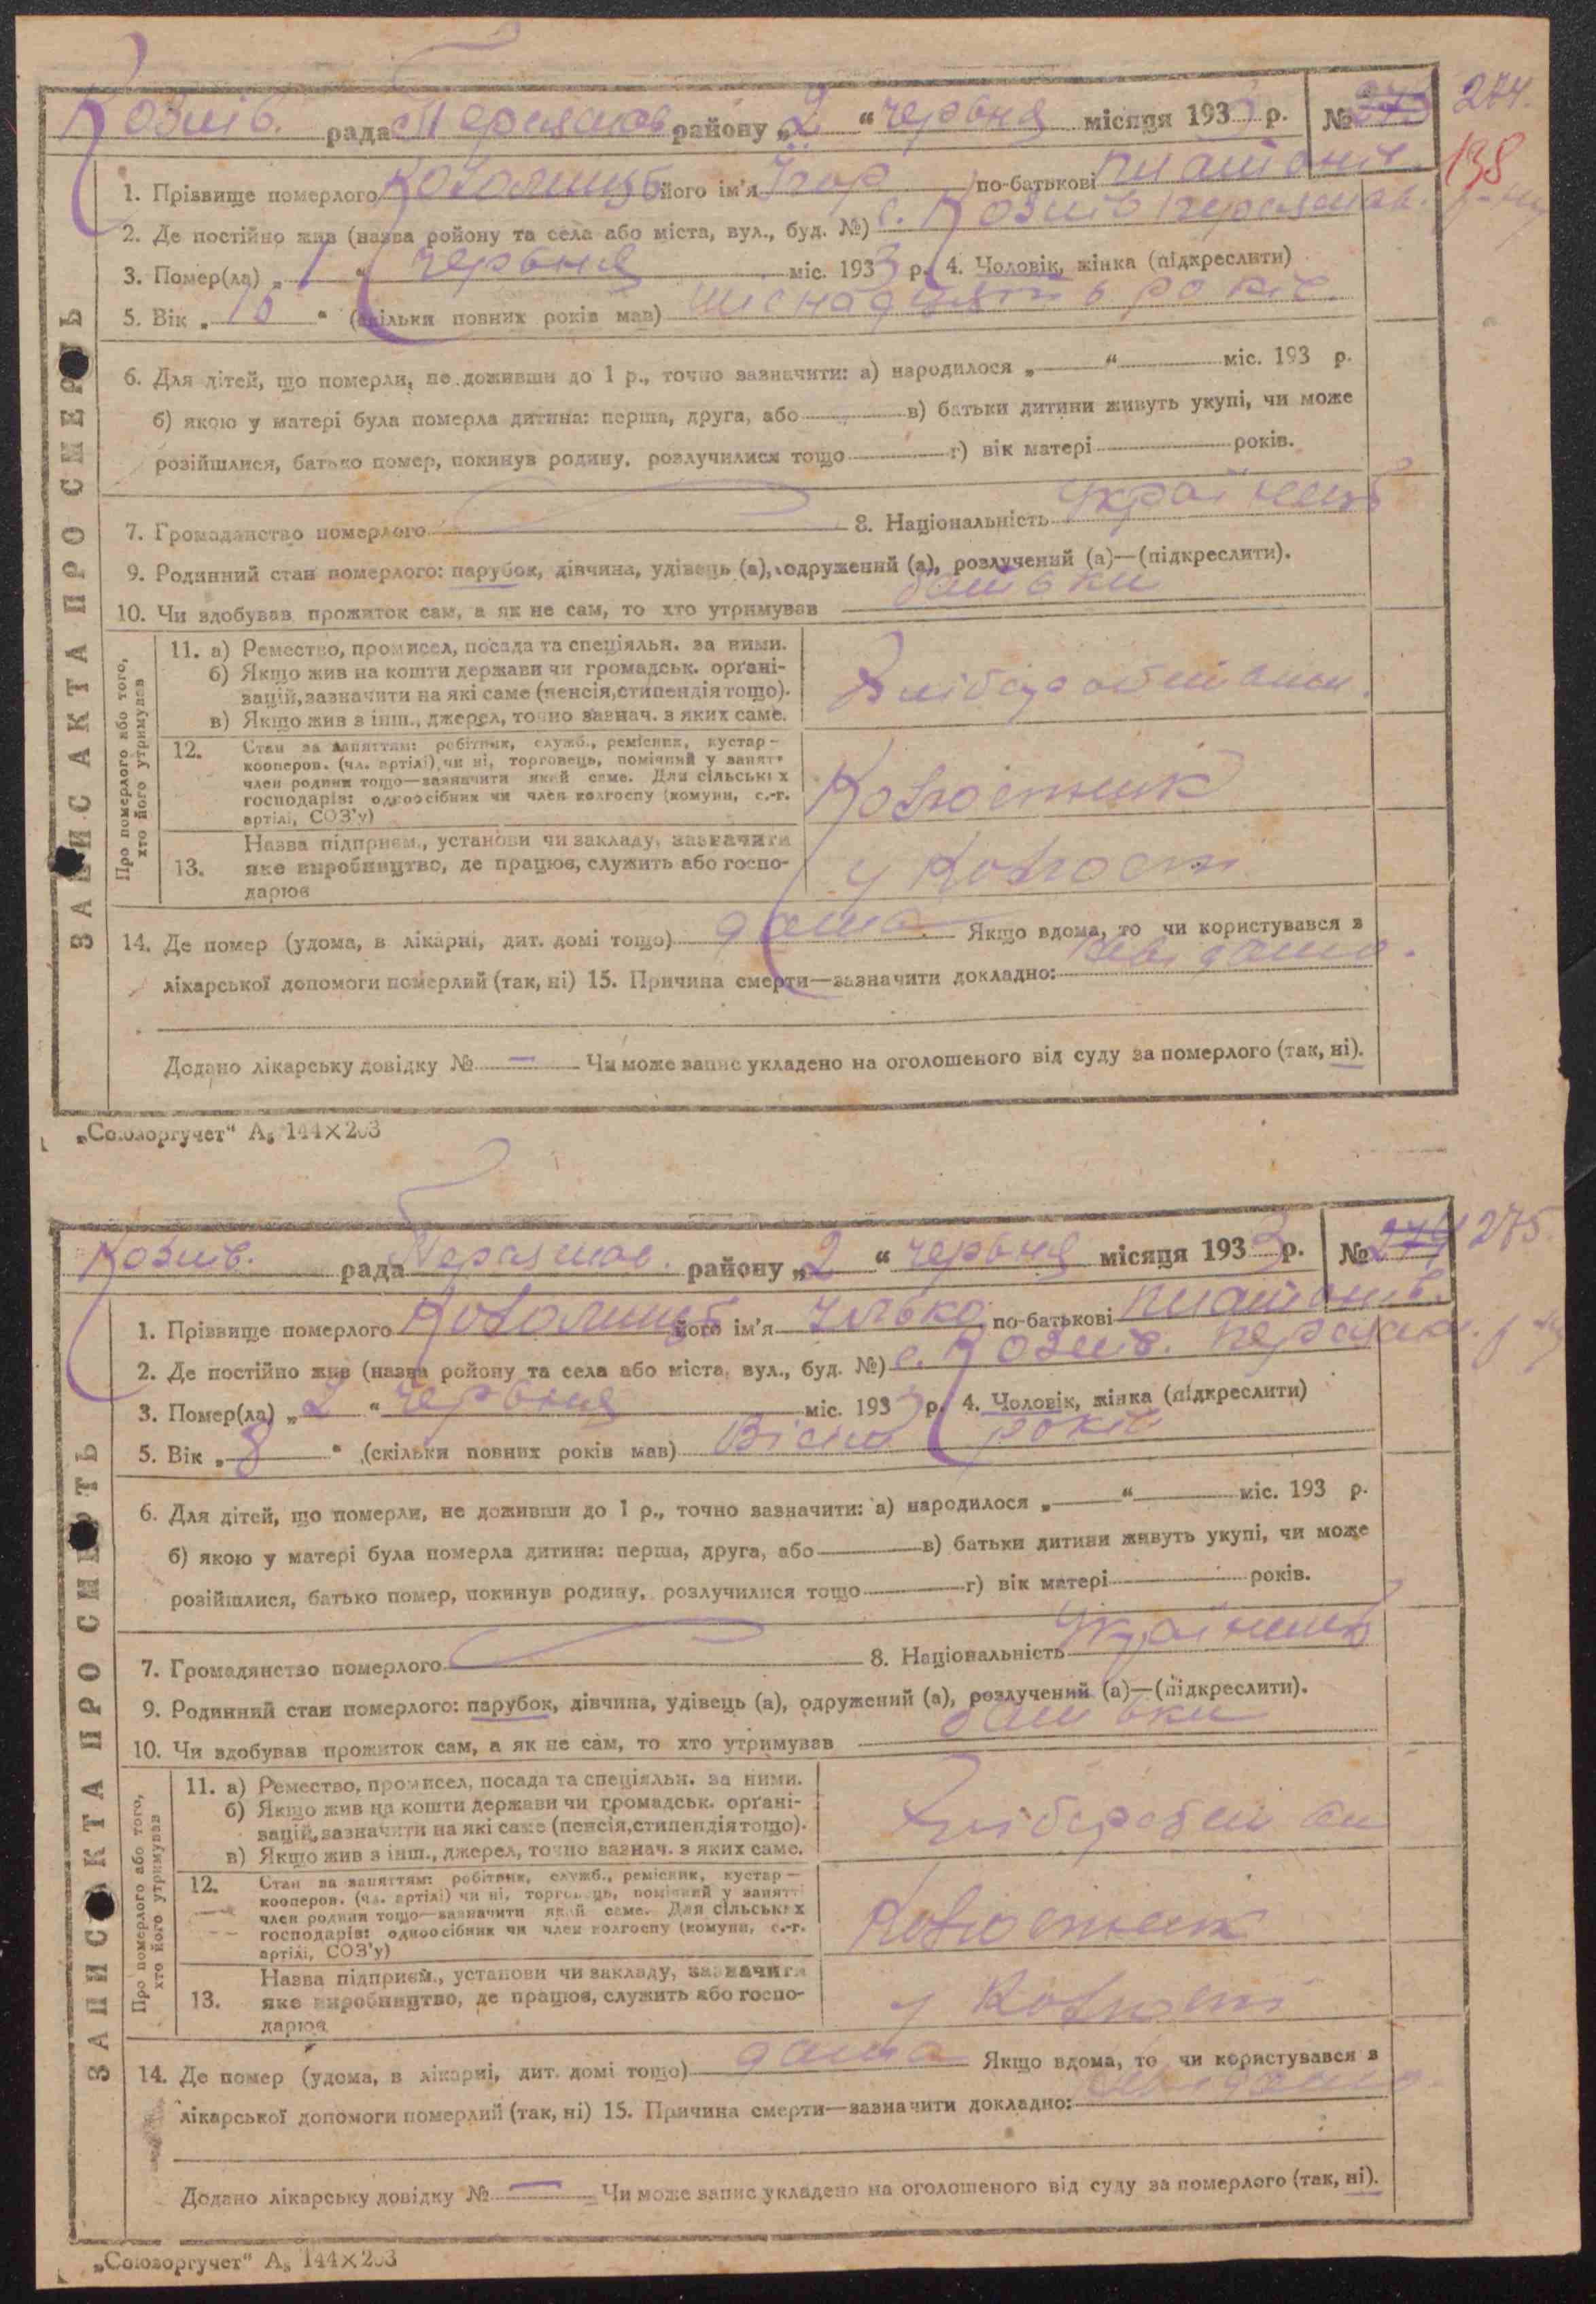 Козлів. рада Переяслов району „2“ червня місяця 1933 р. № 273 274.
138
1. Прізвище померлого його ім'я по-батькові
2. Де постійно жив (назва ройону та села або міста, вул., буд. №) с. Козлів Переяслав.
3. Помер(ла) „1“ червня міс. 1933 р. 4. Чоловік, жінка (підкреслити)
5. Вік „16“ (скільки повних років мав) шіснадцять років.
6. Для дітей, що померли, не доживши до 1 р., точно зазначити: а) народилося „ “ міс. 193 р.
б) якою у матері була померла дитина: перша, друга, або в) батьки дитини живуть укупі, чи може
розійшлися, батько помер, покинув родину, розлучилися тощо г) вік матері років.
7. Громадянство померлого 8. Національність Українець
9. Родинний стан померлого: парубок, дівчина, удівець (а), одружений (а), розлучений (а)—(підкреслити).
10. Чи здобував прожиток сам, а як не сам, то хто утримував батьки
ЗАПИС АКТА ПРО СМЕРТЬ
Про померлого або того, хто його утримував
11. а) Ремество, промисел, посада та спеціяльн. за ними.
б) Якщо жив на кошти держави чи громадськ. орґані-
зацій, зазначити на які саме (пенсія, стипендія тощо).
в) Якщо жив з інш., джерел, точно зазнач. з яких саме.
12. Стан за заняттям: робітник, служб., ремісник, кустар—
кооперов. (чл. артілі) чи ні, торговець, помічний у занятт
член родини тощо—зазначити який саме. Для сільських
господарів: одноосібник чи член колгоспу (комуни, с.-г.
артілі, СОЗ'у)
Колгоспник
13. Назва підприєм., установи чи закладу, зазначити
яке виробництво, де працює, служить або госпо-
дарює
у колгоспі
14. Де помер (удома, в лікарні, дит. домі тощо) дома Якщо вдома, то чи користувався з
лікарської допомоги померлий (так, ні) 15. Причина смерти—зазначити докладно: невідомо.
Додано лікарську довідку № — Чи може запис укладено на оголошеного від суду за померлого (так, ні).
„Союзоргучет“ А₅ 144×203
Козлів. рада Переяслов. району „2“ червня місяця 1933 р. № 274 275.
1. Прізвище померлого його ім'я Ілько по-батькові
2. Де постійно жив (назва ройону та села або міста, вул., буд. №) с. Козлів. Переяслав.
3. Помер(ла) „2“ червня міс. 1933 р. 4. Чоловік, жінка (підкреслити)
5. Вік „8“ (скільки повних років мав) Вісім років
6. Для дітей, що померли, не доживши до 1 р., точно зазначити: а) народилося „ “ міс. 193 р.
б) якою у матері була померла дитина: перша, друга, або в) батьки дитини живуть укупі, чи може
розійшлися, батько помер, покинув родину, розлучилися тощо г) вік матері років.
7. Громадянство померлого 8. Національність Українець
9. Родинний стан померлого: парубок, дівчина, удівець (а), одружений (а), розлучений (а)—(підкреслити).
10. Чи здобував прожиток сам, а як не сам, то хто утримував батьки
ЗАПИС АКТА ПРО СМЕРТЬ
Про померлого або того, хто його утримував
11. а) Ремество, промисел, посада та спеціяльн. за ними.
б) Якщо жив на кошти держави чи громадськ. орґані-
зацій, зазначити на які саме (пенсія, стипендія тощо).
в) Якщо жив з інш., джерел, точно зазнач. з яких саме.
12. Стан за заняттям: робітник, служб., ремісник, кустар—
кооперов. (чл. артілі) чи ні, торговець, помічний у занятті
член родини тощо—зазначити який саме. Для сільських
господарів: одноосібник чи член колгоспу (комуни, с.-г.
артілі, СОЗ'у)
Колгоспник
13. Назва підприєм., установи чи закладу, зазначити
яке виробництво, де працює, служить або госпо-
дарює
у колгоспі
14. Де помер (удома, в лікарні, дит. домі тощо) дома Якщо вдома, то чи користувався з
лікарської допомоги померлий (так, ні) 15. Причина смерти—зазначити докладно: невідомо.
Додано лікарську довідку № — Чи може запис укладено на оголошеного від суду за померлого (так, ні).
„Союзоргучет“ А₅ 144×203